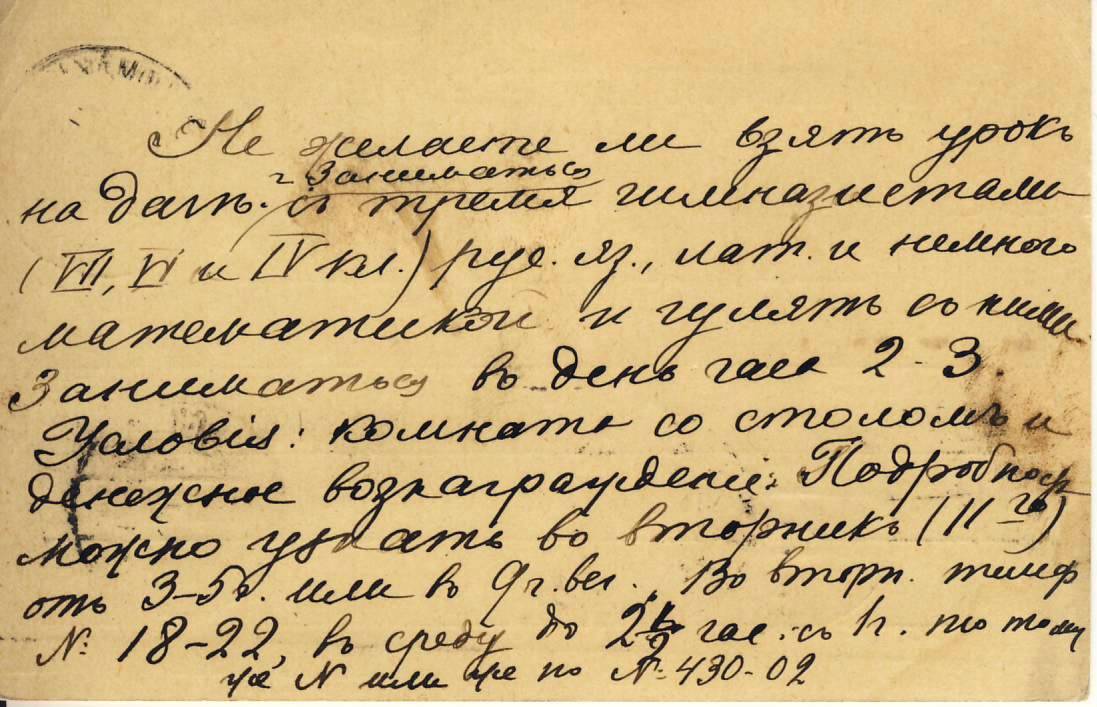 Не желаете ли взять урокъ
на дачѣ. Заниматься
съ тремя гимназистами
(VII, VI и IV кл.) рус. яз., лат. и немного
математикой и гулять со ними.
Заниматься въ день часа 2-3.
Условія: комната со столомъ и
денежное вознагражденіе. Подробност
можно узнать во вторникъ (11го)
отъ 3-5 ч. или въ 9 ч. веч. Во вторн. телеф
№ 18-22, въ среду до 2 час. съ по тому
же № или же по № 430-02